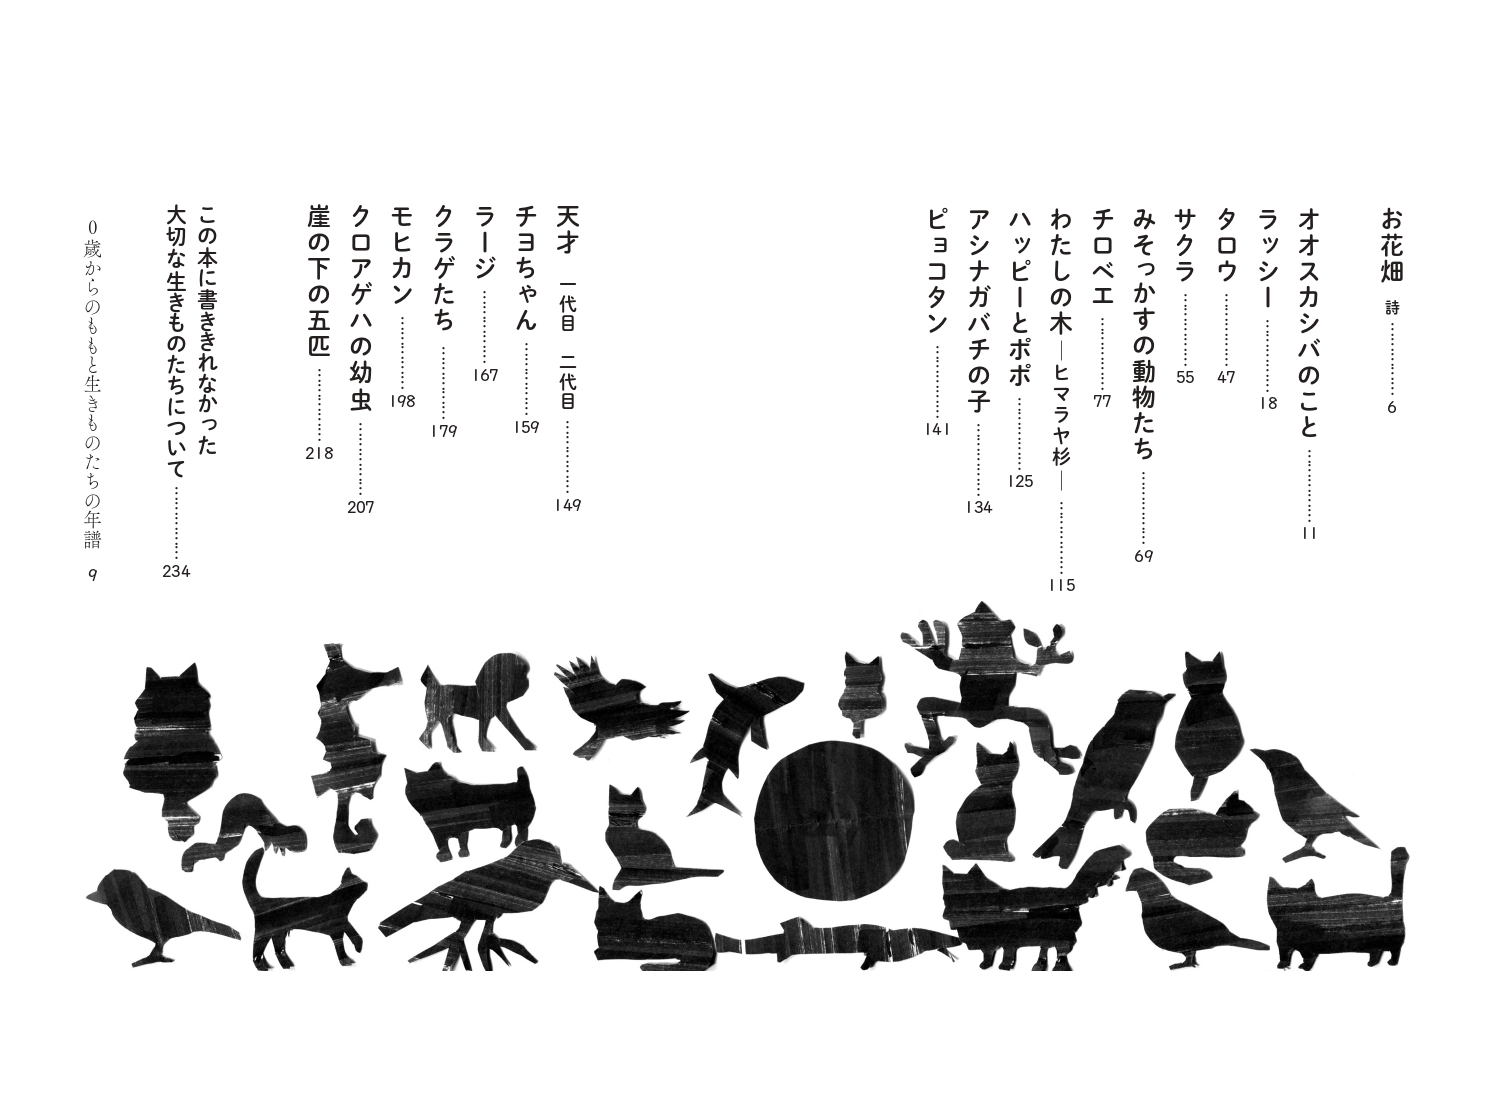 お花畑 詩…………6
オオスカシバのこと…………11
ラッシー…………18
タロウ…………47
サクラ…………55
みそっかすの動物たち…………69
チロベエ…………77
わたしの木―ヒマラヤ杉―…………115
ハッピーとポポ…………125
アシナガバチの子…………134
ピョコタン…………141
天才 一代目 二代目…………149
チヨちゃん…………159
ラージ…………167
クラゲたち…………179
モヒカン…………198
クロアゲハの幼虫…………207
崖の下の五匹…………218
この本に書ききれなかった
大切な生きものたちについて…………234
0歳からのももと生きものたちの年譜 9